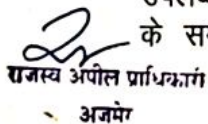 के स
राजस्व अपील प्राधिकारी
अजमेर